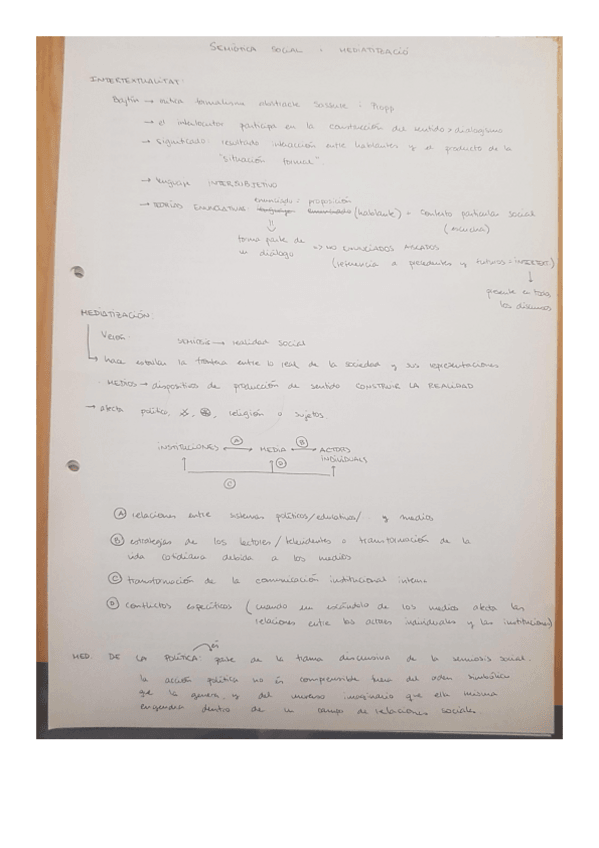 SEMIÓTICA SOCIAL I MEDIATITZACIÓ
INTERTEXTUALITAT:
Bajtín → critica formalisme abstracte Saussure i Propp
→ el interlocutor participa en la construcción del sentido → dialogismo
→ Significado: resultado interacción entre hablantes y el producto de la
"situación formal".
→ lenguaje INTERSUBJETIVO
enunciado = proposición
→ TEORÍAS ENUNCIATIVAS: (hablante) + contexto particular social
(escucha)
forma parte de => NO ENUNCIADOS AISLADOS
un diálogo (referencia a precedentes y futuros = INTERTEXT.)
presente en todos
los discursos
MEDIATIZACIÓN:
Verón: SEMIOSIS → realidad social
→ hace estallar la frontera entre lo real de la sociedad y sus representaciones
· MEDIOS → dispositivos de producción de sentido CONSTRUIR LA REALIDAD
→ afecta política, religión o sujetos
INSTITUCIONES ↔ MEDIA ↔ ACTORES
INDIVIDUALS
A B D C
A relaciones entre sistemas políticos/educativos/ y medios
B estrategias de los lectores/televidentes o transformación de la
vida cotidiana debida a los medios
C transformación de la comunicación institucional interna
D conflictos específicos (cuando un escándalo de los medios afecta las
relaciones entre los actores individuales y las instituciones)
és
MED. DE LA POLÍTICA: parte de la trama discursiva de la semiosis social.
la acción política no és comprensible fuera del orden simbólico
que la genera, y del universo imaginario que ella misma
engendra dentro de un campo de relaciones sociales.